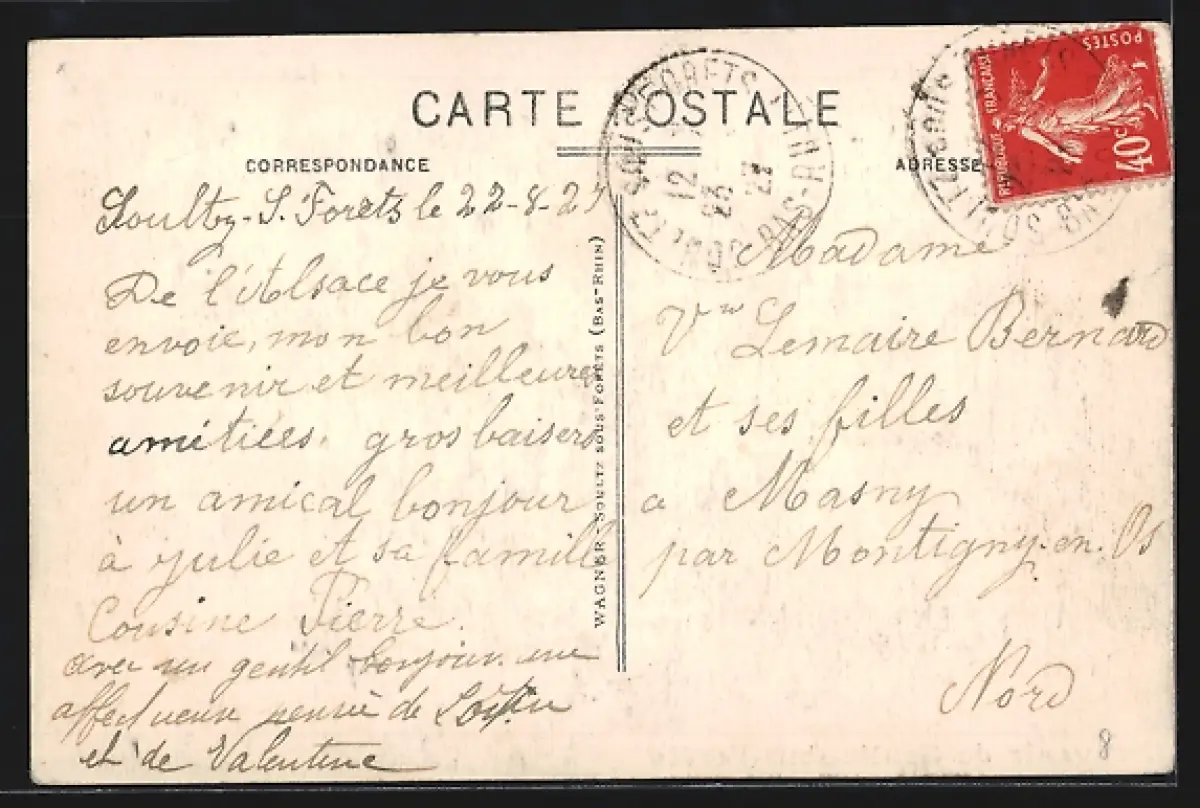 CARTE POSTALE
CORRESPONDANCE
Soultz-S. Forets le 22-8-27
De l'Alsace je vous
envoie, mon bon
souvenir et meilleures
amitiées. gros baisers
un amical bonjour
à julie et sa famille
Cousine Pierre.
avec un gentil bonjour. une
affectueuse pensée de
et de Valentine
WAGNER - SOULTZ SOUS FORETS (BAS-RHIN)
SOULTZ SOUS FORETS BAS-RHIN
12
23
27
ADRESSE
POSTES
REPUBLIQUE FRANÇAISE
40c
Madame
Vve Lemaire Bernard
et ses filles
a Masny
par Montigny. en. Os
Nord
8